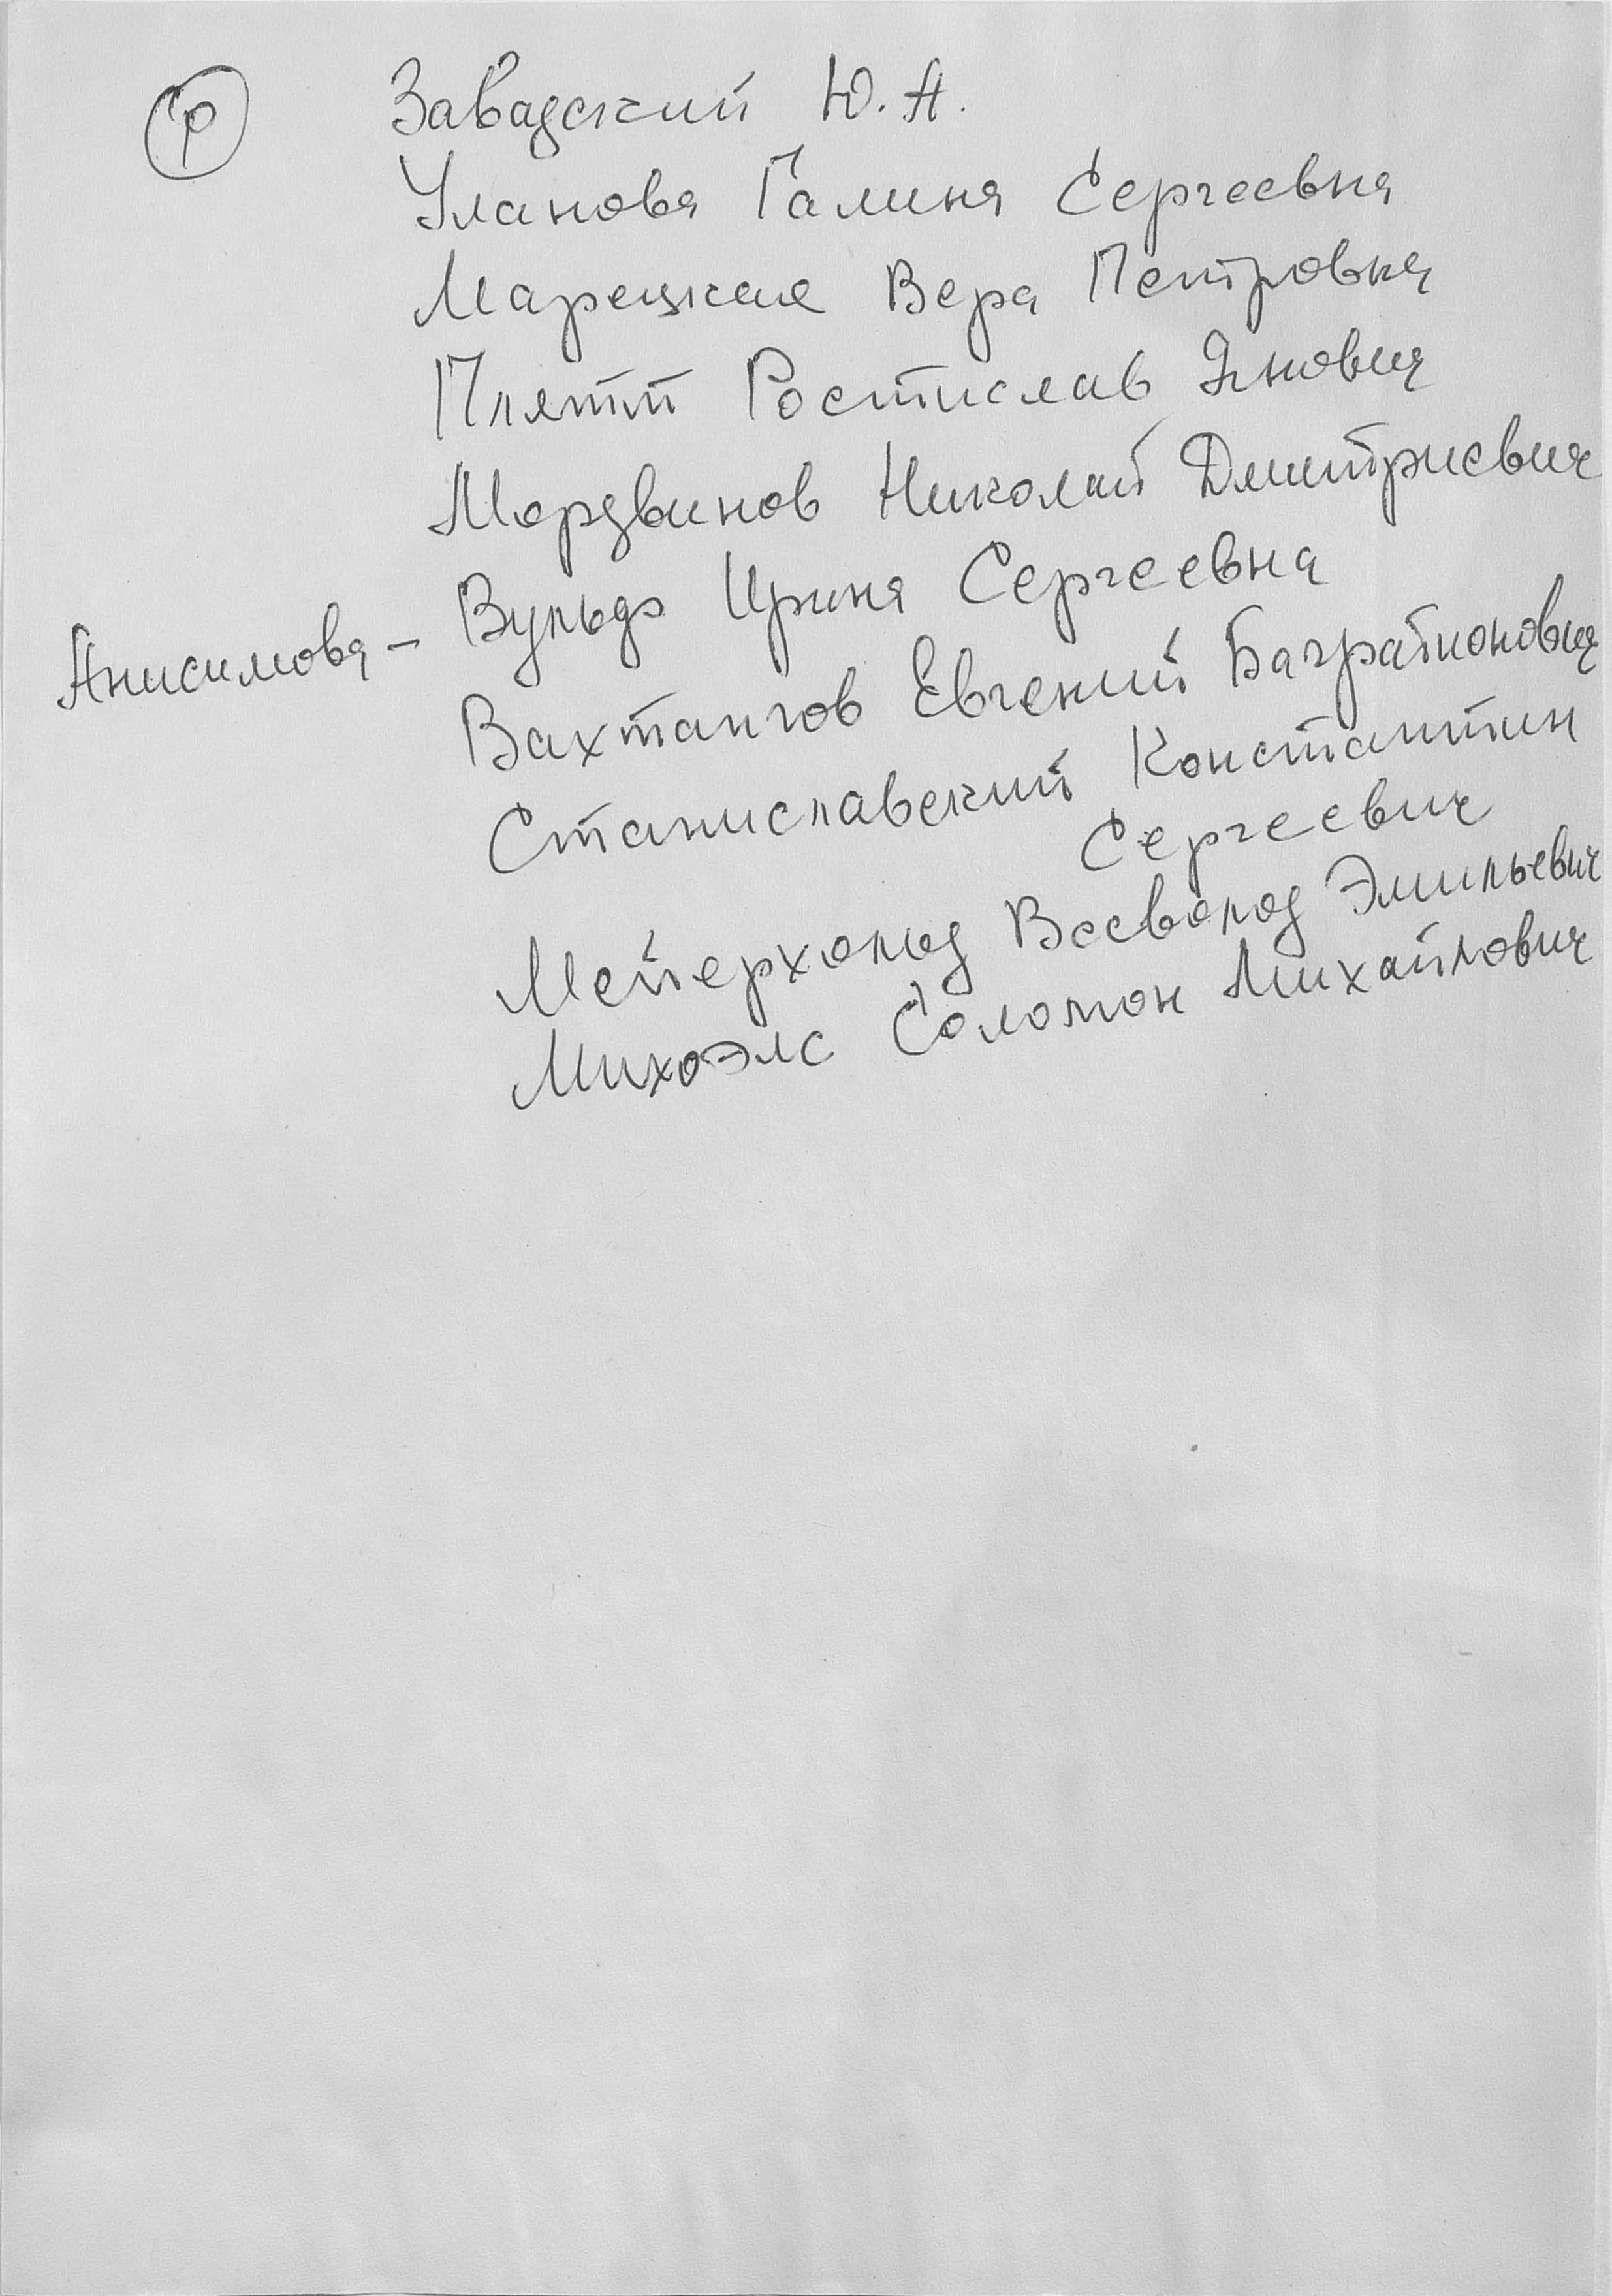 Ф
Завадский Ю.А.
Уланова Галина Сергеевна
Марецкая Вера Петровна
Плятт Ростислав Янович
Мордвинов Николай Дмитриевич
Анисимова – Вульф Ирина Сергеевна
Вахтангов Евгений Багратионович
Станиславский Константин
Сергеевич
Мейерхольд Всеволод Эмильевич
Михоэлс Соломон Михайлович